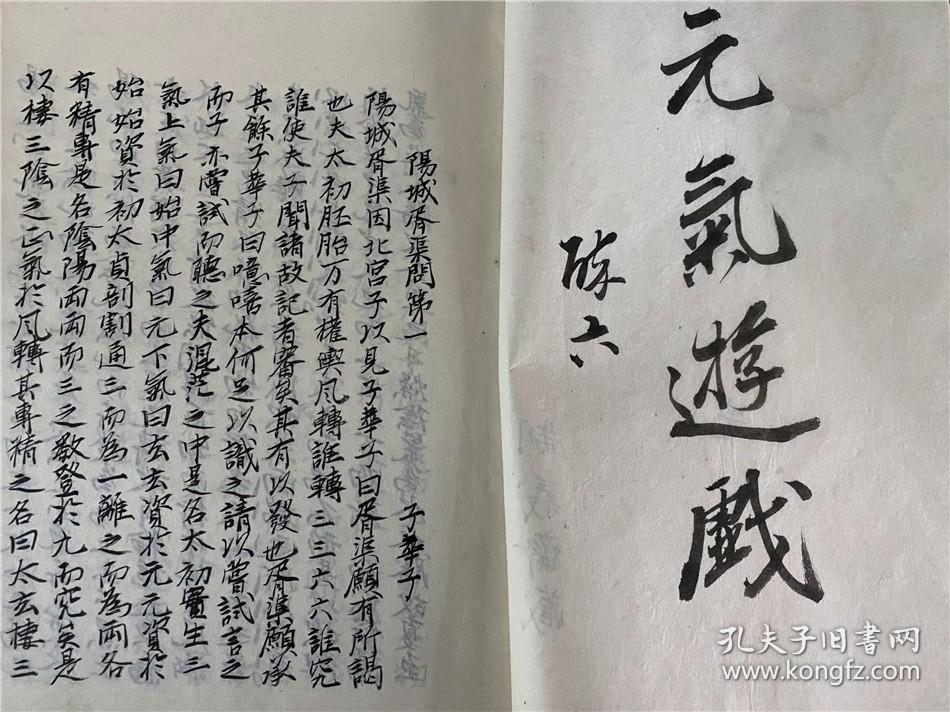 元氣遊戲
六
陽城胥渠問第一
子華子
陽城胥渠因北宮子以見子華子曰胥渠願有所謁
也夫太初胚胎万有權輿風轉誰轉三三六六誰究
誰使夫子聞諸故記者審矣其有以發也胥渠願承
其餘子華子曰噫嘻本何足以識之請以嘗試言之
而子亦嘗試而聽之夫混茫之中是名太初實生三
氣上氣曰始中氣曰元下氣曰玄玄資於元元資於
始始資於初太貞剖割通三而為一離之而為兩各
有精專是名陰陽兩兩而三之數登於九而究矣是
以棲三陰之正氣於風轉其專精之名曰太玄棲三
孔夫子旧书网
www.kongfz.com